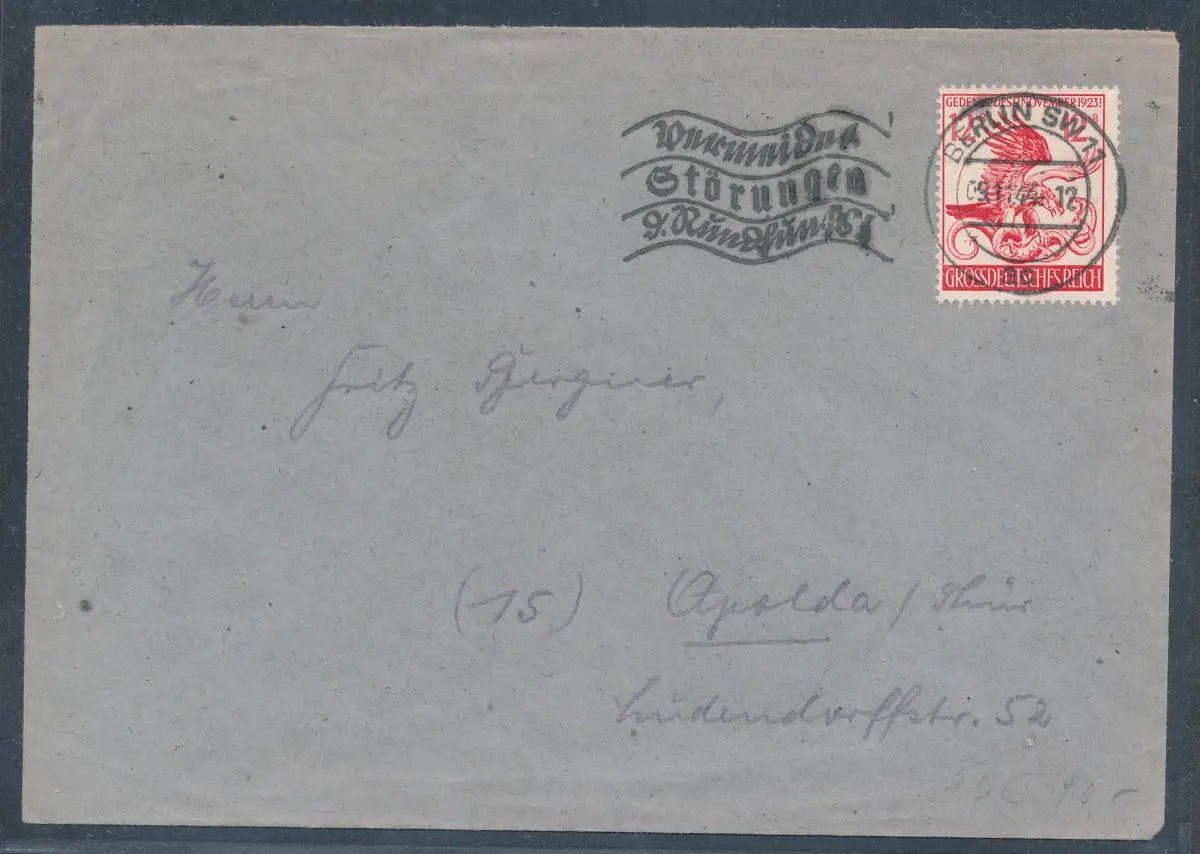 vermeidet
Störungen
d. Rundfunks!
GEDENKT DES 9. NOVEMBER 1923!
12 8
BERLIN SW 11
09.11.44 12
GROSSDEUTSCHES REICH
Herrn
Fritz Bergner,
(15) Apolda / Thür
Ludendorffstr. 52